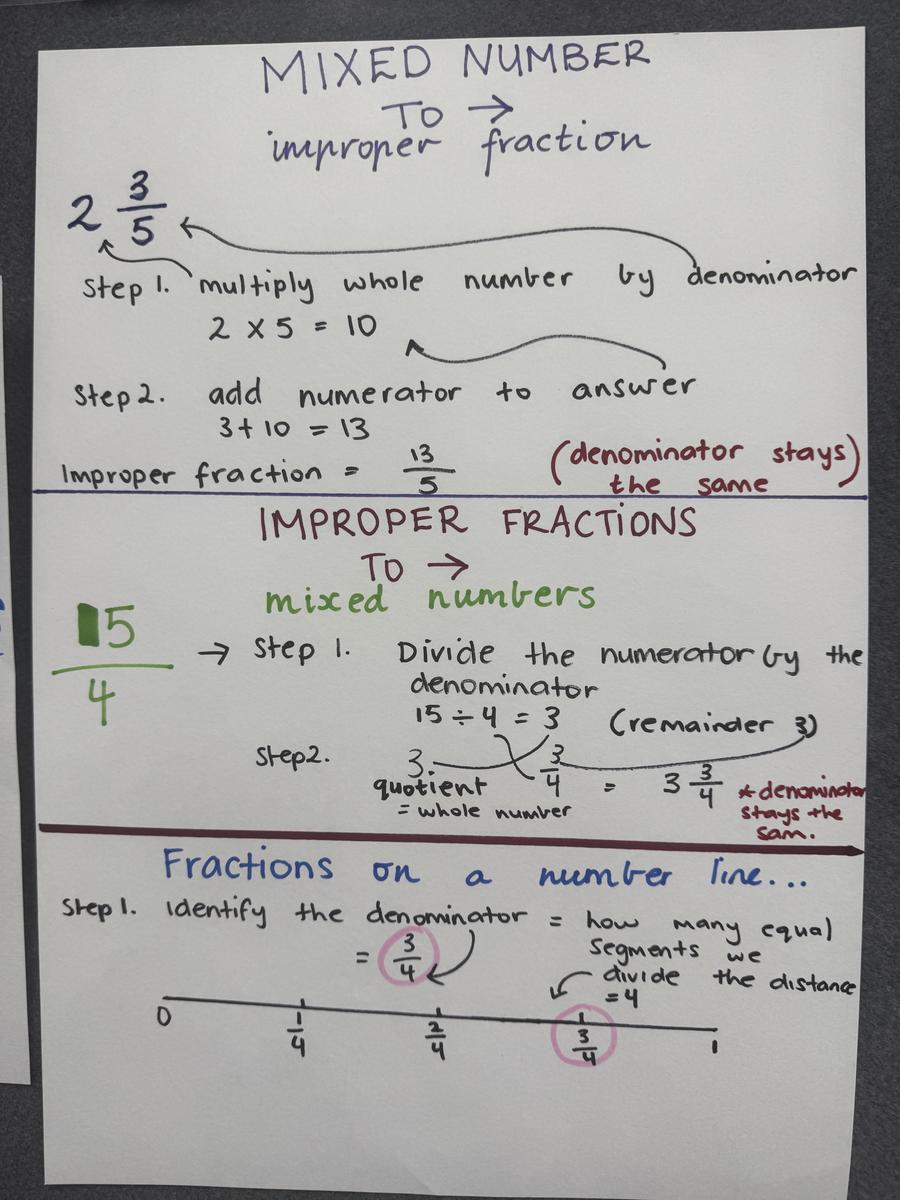 MIXED NUMBER
TO →
improper fraction
2 3/5
Step 1. multiply whole number by denominator
2 × 5 = 10
Step 2. add numerator to answer
3 + 10 = 13
Improper fraction = 13/5 (denominator stays
the same)
IMPROPER FRACTIONS
TO →
mixed numbers
15/4 → Step 1. Divide the numerator by the
denominator
15 ÷ 4 = 3 (remainder 3)
Step 2. 3. 3/4 = 3 3/4
quotient
= whole number
* denominator
stays the
sam.
Fractions on a number line...
Step 1. Identify the denominator = how many equal
segments we
divide the distance
= 4
= 3/4
0 1/4 2/4 3/4 1